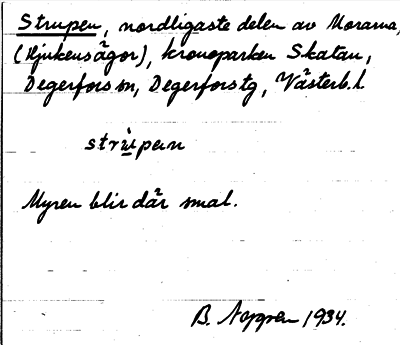 Strupen, nordligaste delen av Morarna,
(Kjukensågor), kronoparken Skatan,
Degerfors sn, Degerfors tg, Västerb. l.
strùpen
Myren blir där smal.
B. 1934.